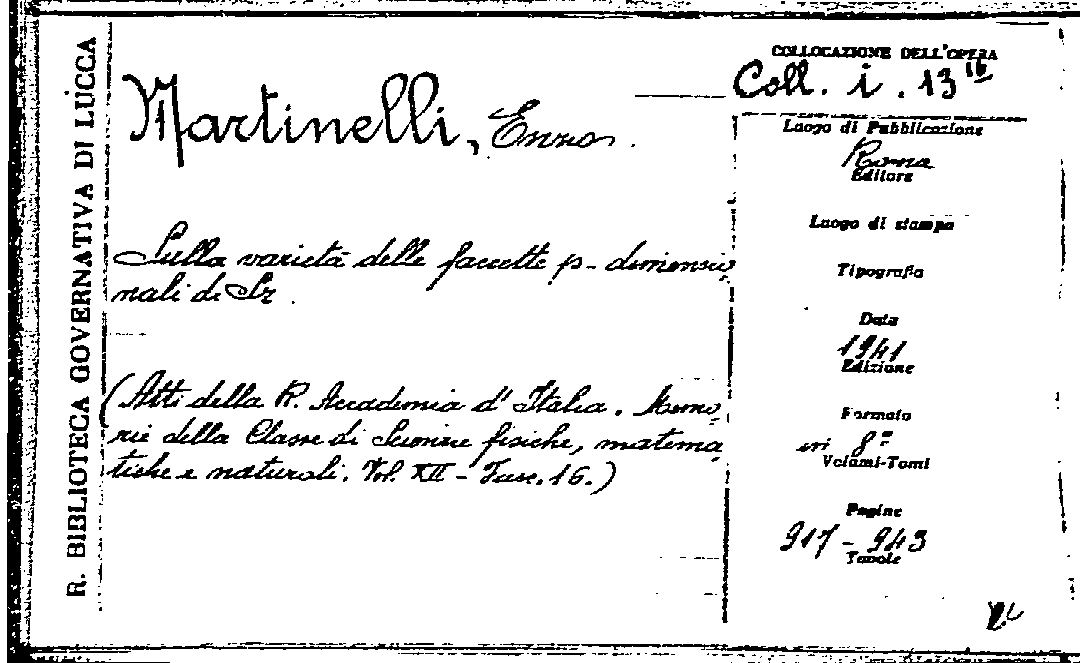 R. BIBLIOTECA GOVERNATIVA DI LUCCA
Martinelli, Enzo.
Sulla varietà delle faccette p-dimensio
nali di Sr.
(Atti della R. Accademia d'Italia. Memo
rie della Classe di Scienze fisiche, matema
tiche e naturali. Vol. XII - Fasc. 16.)
COLLOCAZIONE DELL'OPERA
Coll. i. 13
Luogo di Pubblicazione
Roma
Editore
Luogo di stampa
Tipografia
Data
1941
Edizione
Formato
in 8º
Volumi-Tomi
Pagine
917 - 943
Tavole